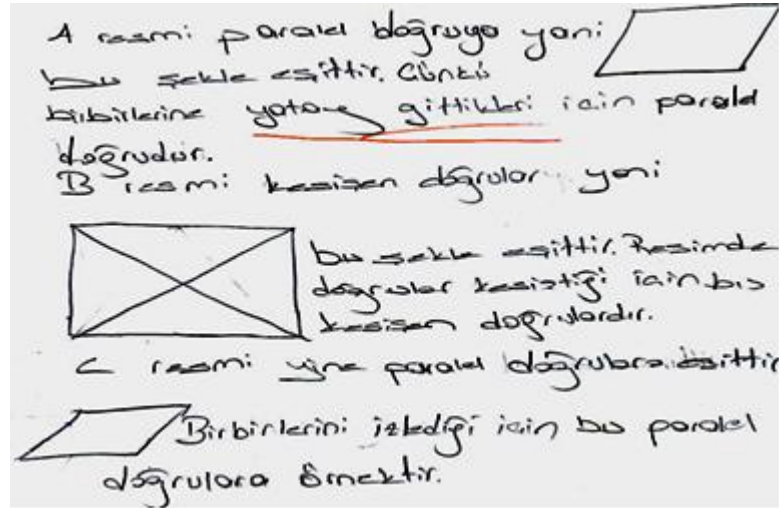 A resmi paralel doğruya yani
bu şekle eşittir. Çünkü
birbirlerine yatay gittikleri için paralel
doğrudur.
B resmi kesişen doğrular yani
bu şekle eşittir. Resimde
doğrular kesiştiği için bu
kesişen doğrulardır.
C resmi yine paralel doğrulara eşittir
Birbirlerini izlediği için bu paralel
doğrulara örnektir.